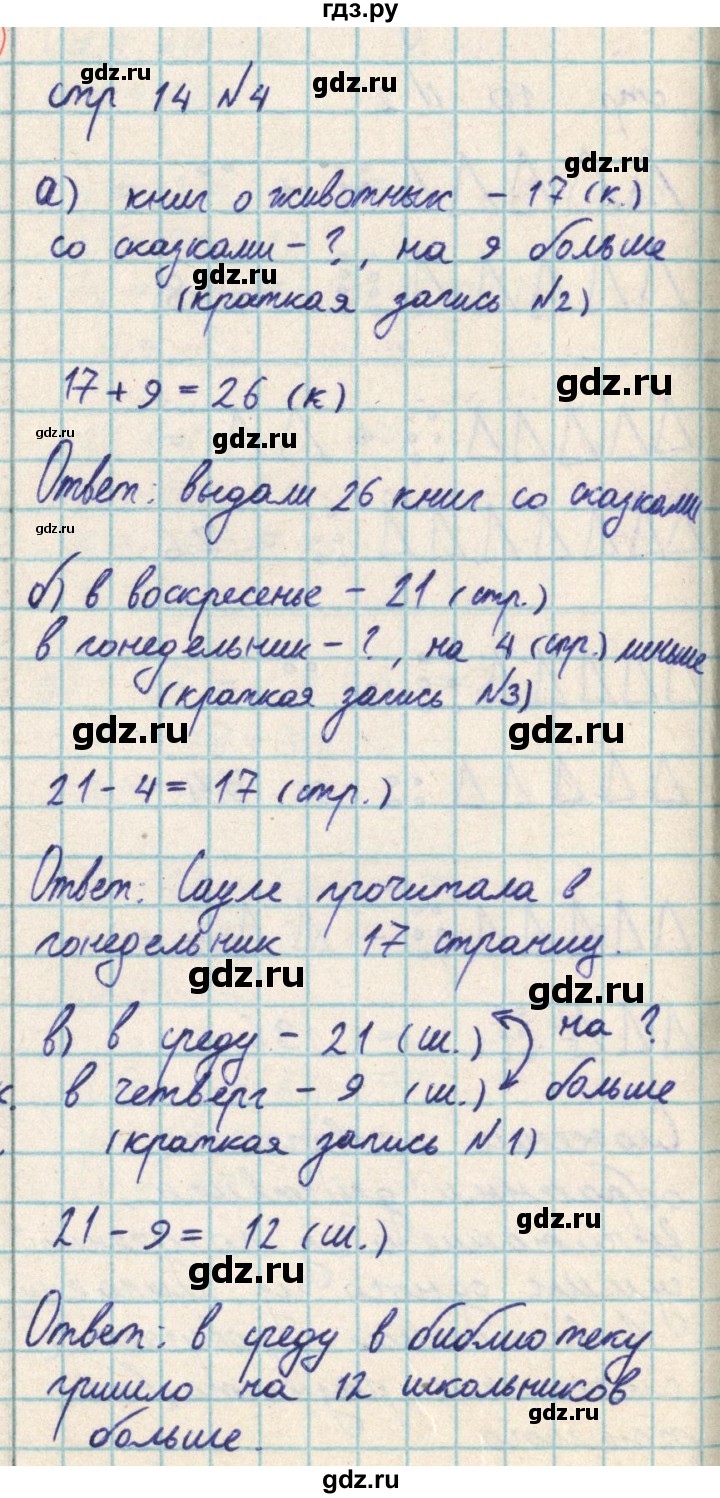 гдз.ру
gdz.ru
стр 14 №4
gdz.ru
gdz.ru
а) книг о животных - 17 (к.)
со сказками - ?, на 9 больше
gdz.ru
(краткая запись №2)
gdz.ru
17 + 9 = 26 (к)
gdz.ru
gdz.ru
Ответ: выдали 26 книг со сказками
gdz.ru
б) в воскресенье - 21 (стр.)
в понедельник - ?, на 4 (стр.) меньше
(краткая запись №3)
gdz.ru
gdz.ru
21 - 4 = 17 (стр.)
Ответ: Сауле прочитала в
понедельник 17 страниц.
gdz.ru
gdz.ru
в) в среду - 21 (ш.) на ?
в четверг - 9 (ш.) больше
(краткая запись №1)
21 - 9 = 12 (ш.)
gdz.ru
gdz.ru
Ответ: в среду в библиотеку
пришло на 12 школьников
больше.
gdz.ru
gdz.ru